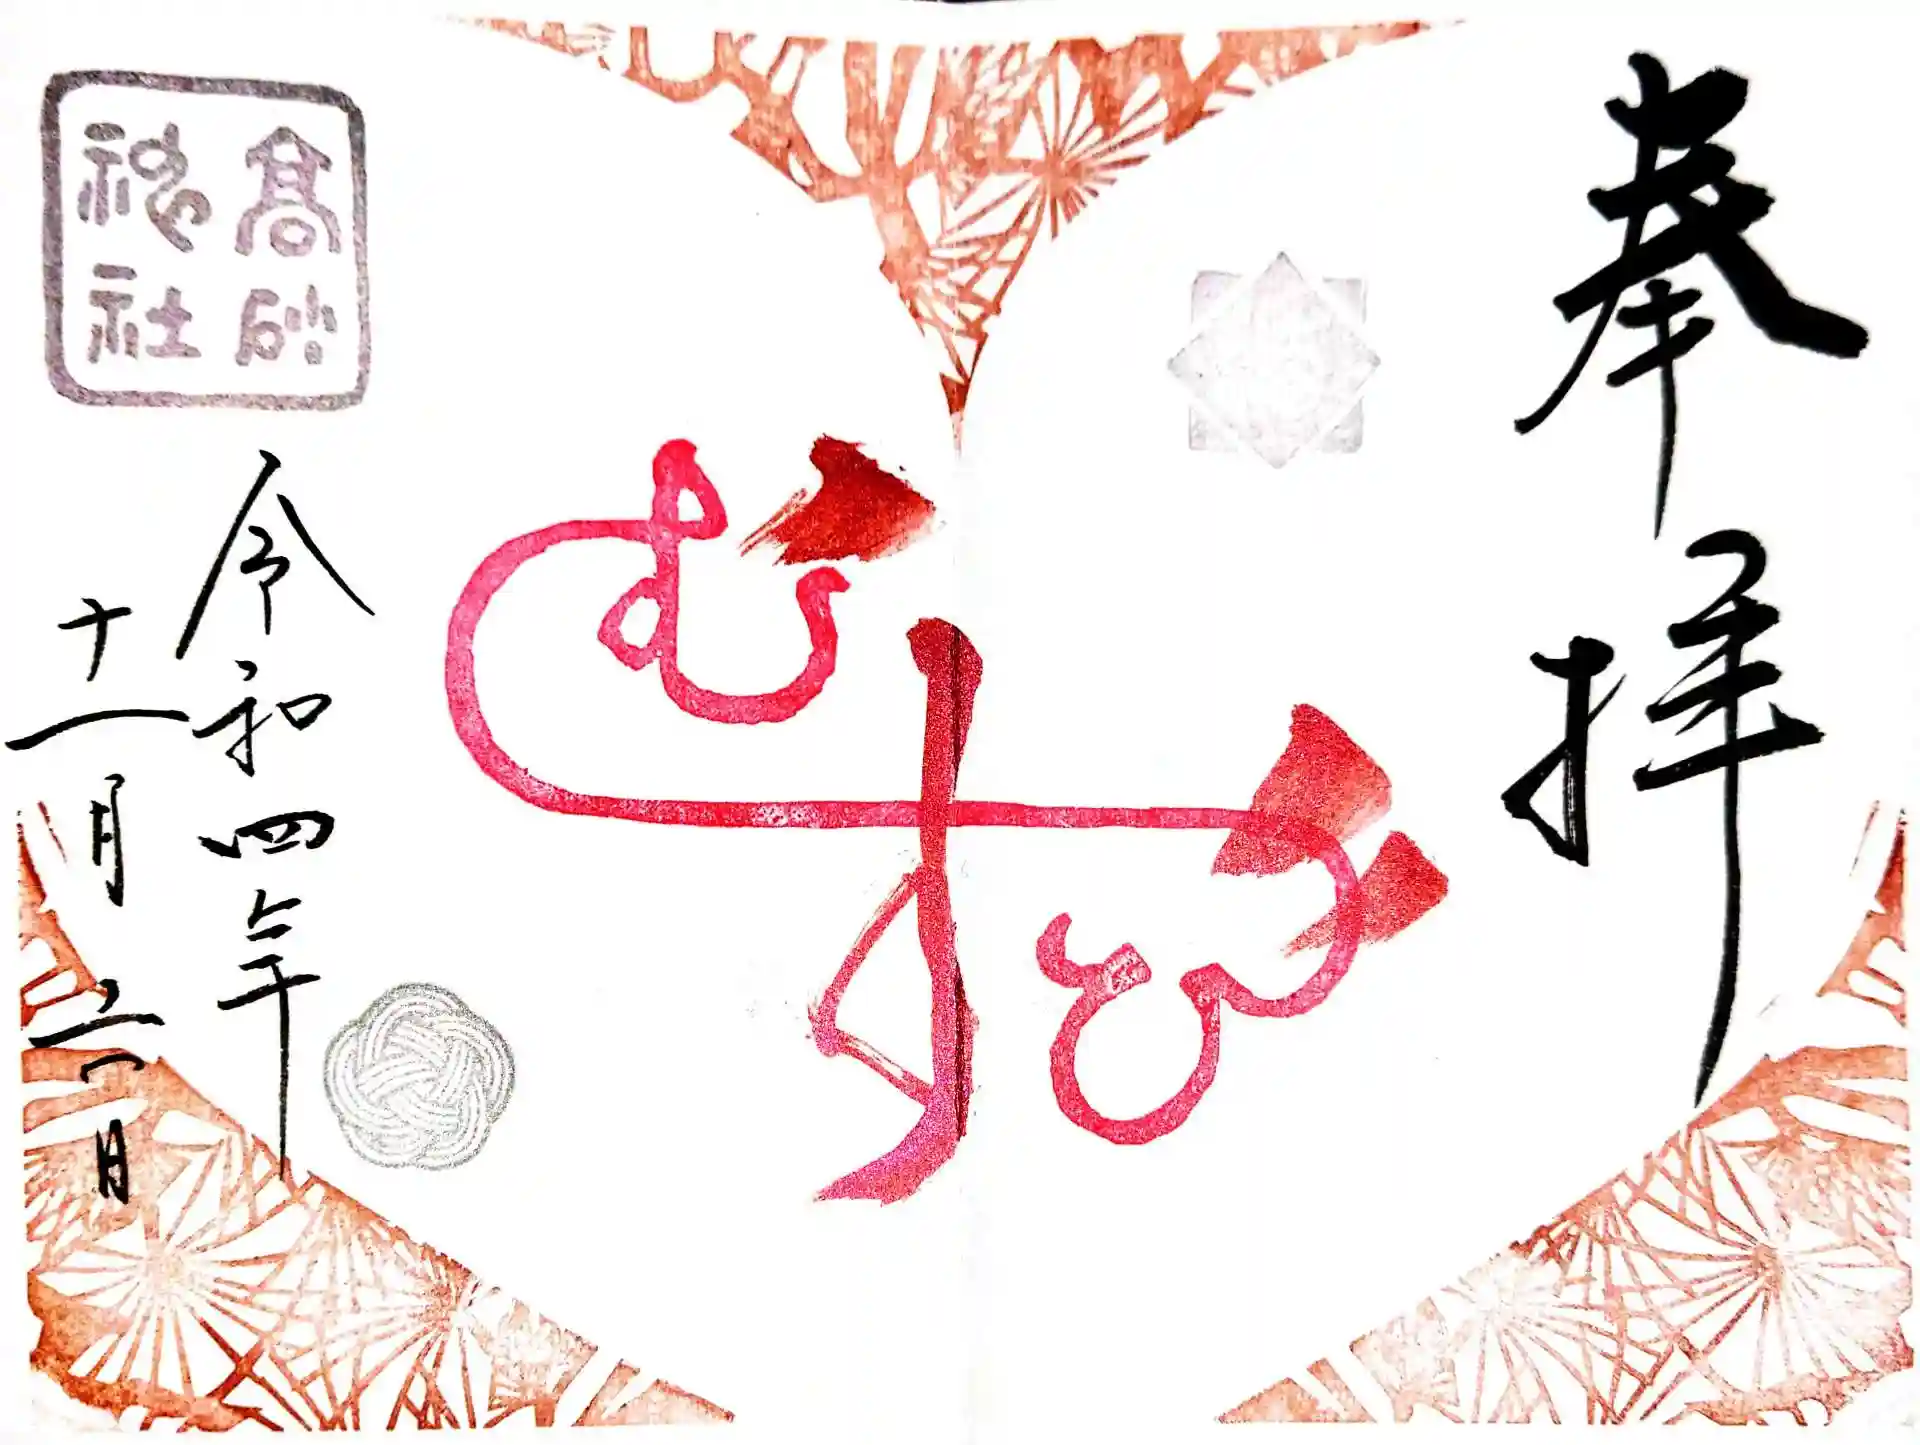 奉拝
むすび
髙砂
神社
令和四年
十一月 日